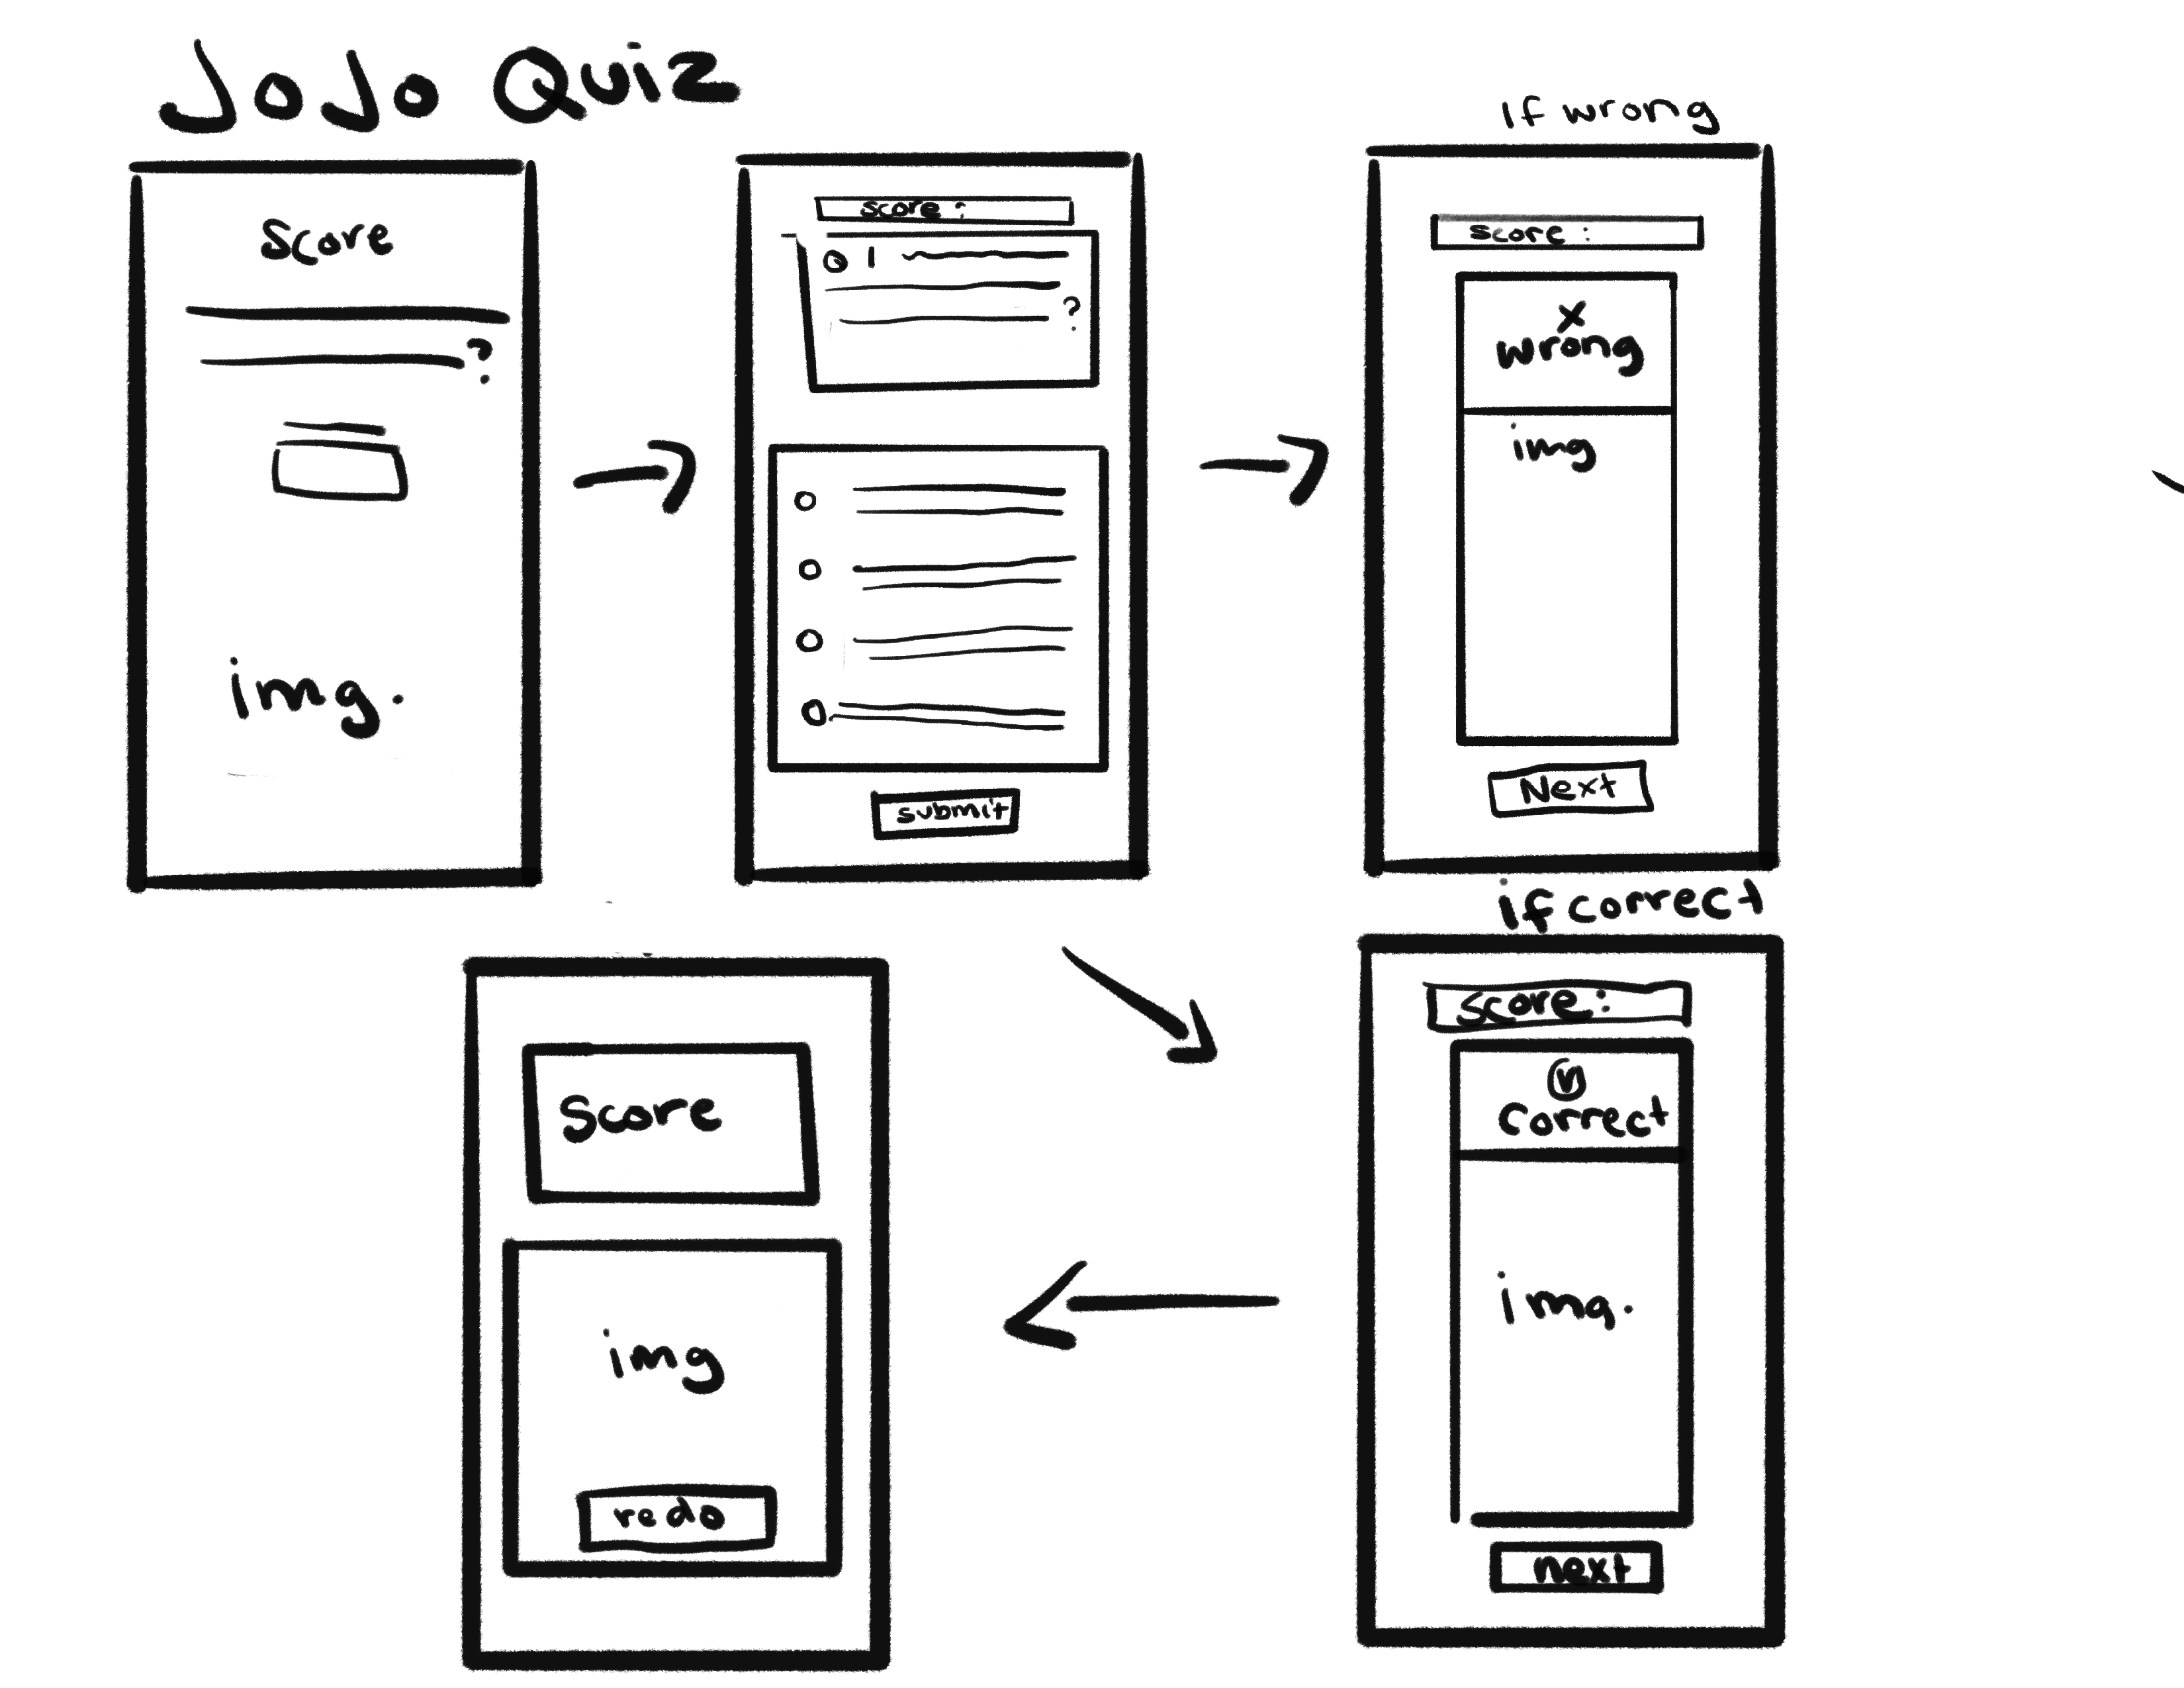 JoJo Quiz
Score
?
img.
score :
Q 1
?
submit
if wrong
score :
x
wrong
img
Next
if correct
score :
correct
img.
next
Score
img
redo